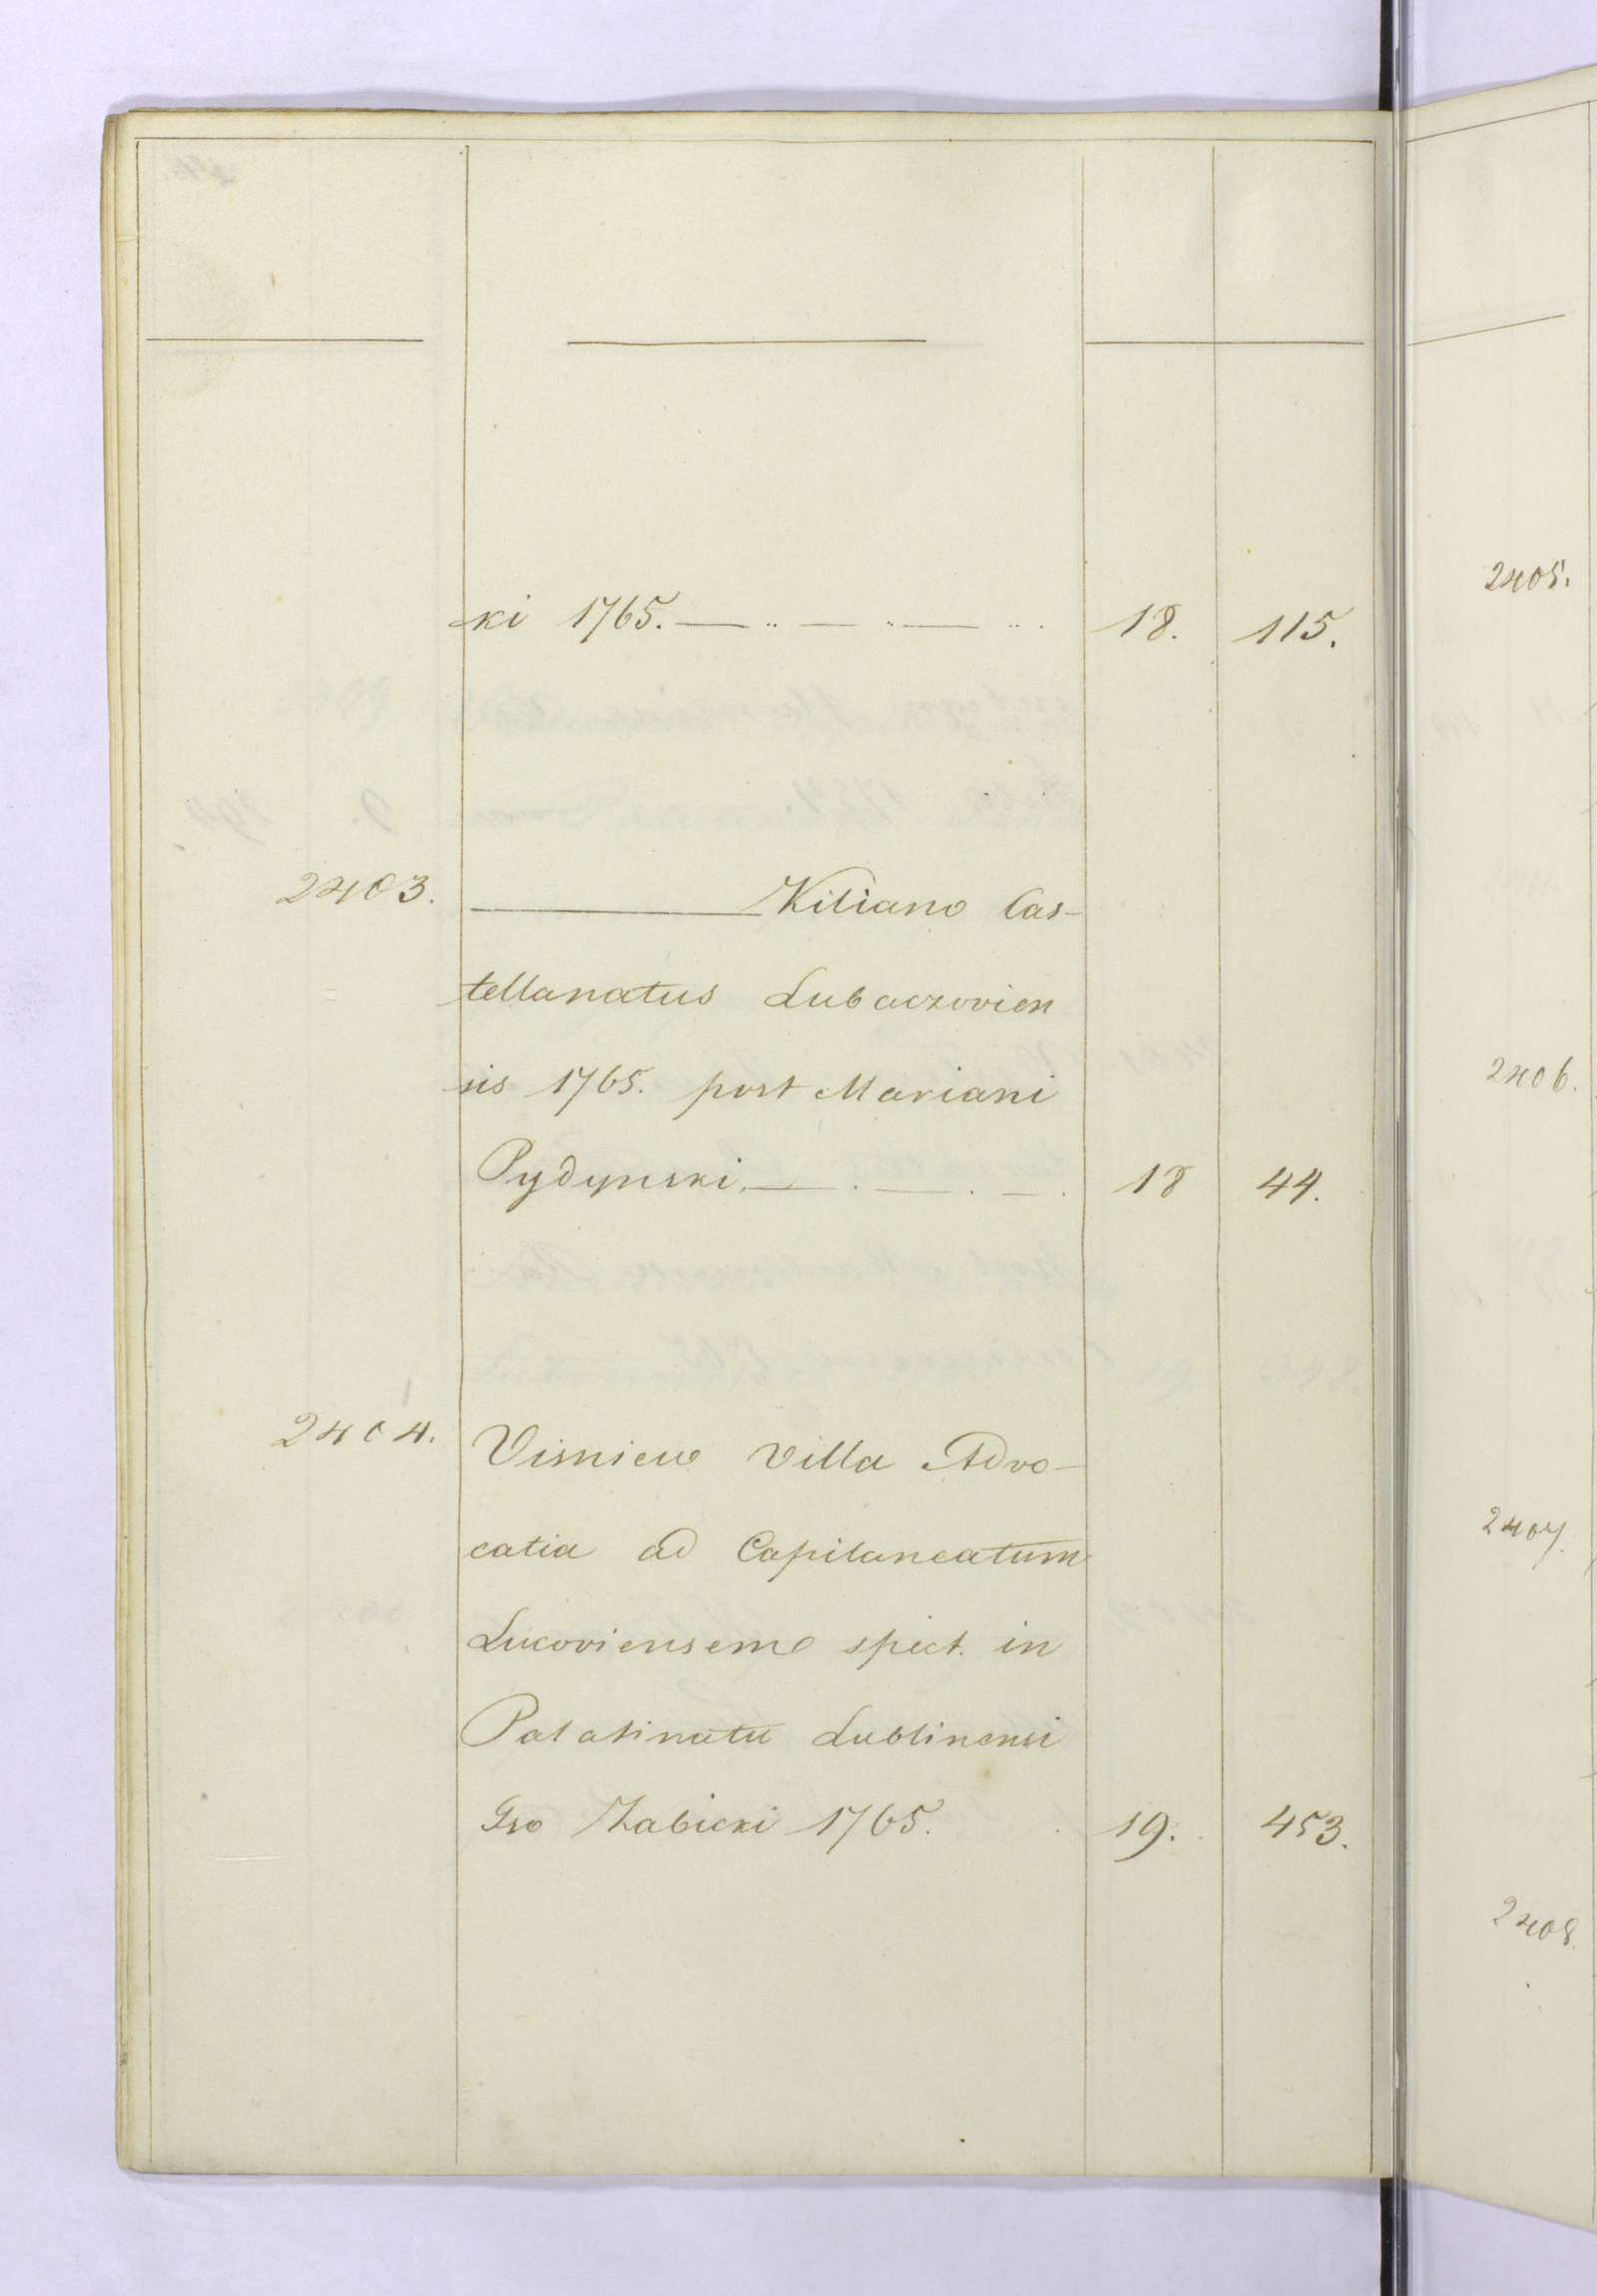 ki 1765. — .. — .. — .. . 18. 115.
2403. ——— Kiliano Cas-
tellanatus Lubaczovien
sis 1765. post Mariani
Pydynski. — . — . — . 18 44.
2404. Visniew villa Advo-
catia ad Capitaneatum
Lucoviensem spect. in
Palatinatu Lublinensi
Gso Zabicki 1765. 19. 453.
2405.
2406.
2407.
2408